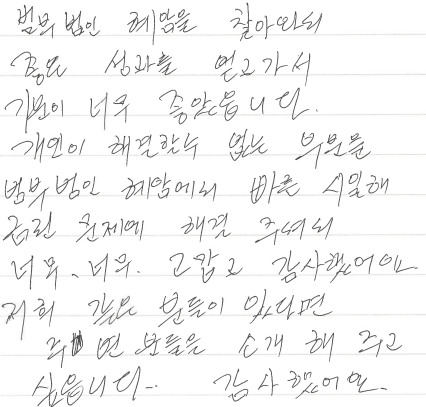 법무법인 혜암을 찾아와서
좋은 성과를 얻고가서
기분이 너무 좋았습니다.
개인이 해결할수 없는 부분을
법무법인 혜암에서 빠른 시일해
금전 문제에 해결 주셔서
너무, 너무. 고맙고 감사했어요.
저희 같은 분들이 있다면
주변 분들을 소개 해 주고
싶습니다.. 감사했어요.